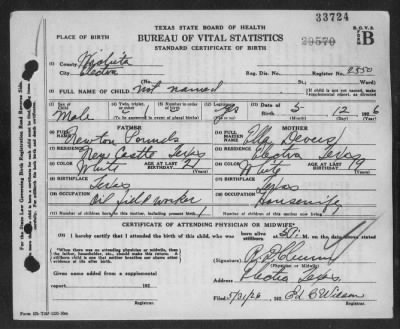 33724
TEXAS STATE BOARD OF HEALTH
BUREAU OF VITAL STATISTICS
STANDARD CERTIFICATE OF BIRTH
B.O.V.S.
1B
PLACE OF BIRTH
County Wichita
City Electra
Reg. Dis. No. Register No.
(No. St.)
FULL NAME OF CHILD Not named
Sex of Child Male
Twin, triplet, or other?
Number in order of birth 1
(To be answered only in event of plural births)
Legitimate? Yes
Date of Birth 5 12 1926
(Month) (Day) (Year)
FATHER
MOTHER
FULL NAME Newton Pounds
FULL MAIDEN NAME Ella
RESIDENCE New Castle Texas
RESIDENCE Electra Texas
COLOR White AGE AT LAST BIRTHDAY 21 (Years)
COLOR White AGE AT LAST BIRTHDAY 19 (Years)
BIRTHPLACE Texas
BIRTHPLACE Texas
OCCUPATION Oil field worker
OCCUPATION Housewife
Number children born to this mother, including present birth 1
CERTIFICATE OF ATTENDING PHYSICIAN OR MIDWIFE*
I hereby certify that I attended the birth of this child, who was born alive stillborn at M. on the date above stated
*When there was no attending physician or midwife, then the father, householder, etc., should make this return. A stillborn child is one that neither breathes nor shows other evidence of life after birth.
(Signature)
(Physician or Midwife)
Given name added from a supplemental
report 192
Registrar.
Address Electra Texas
5/31/26 192 Registrar.